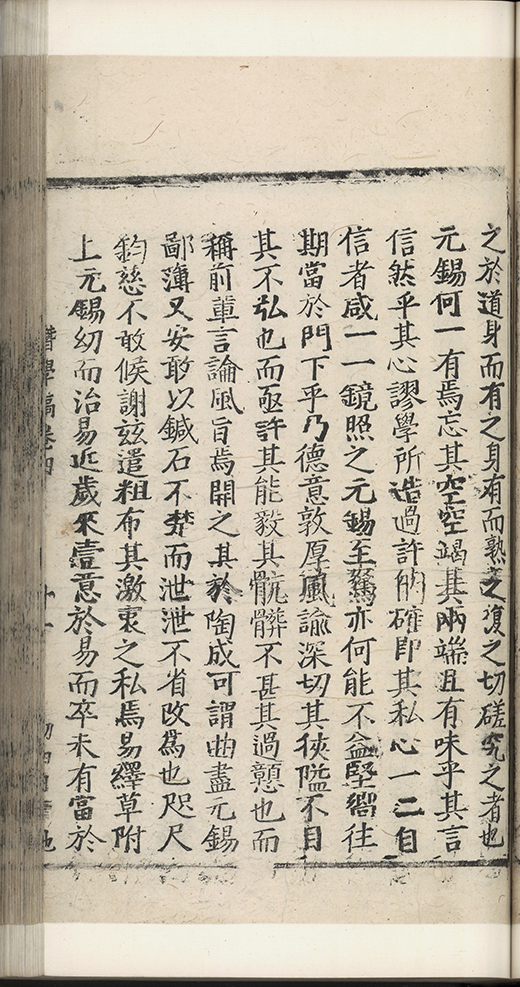 之於道身而有之身有而熟之復之切磋究之者也
元錫何一有焉忘其空空竭其兩端且有味乎其言
信然乎其心謬學所造過許的確即其私心一二自
信者咸一一鏡照之元錫至駑亦何能不益堅嚮往
期當於門下乎乃德意敦厚風諭深切其狹隘不自
其不弘也而亟許其能毅其骯髒不甚其過戇也而
稱前輩言論風旨焉開之其於陶成可謂曲盡元錫
鄙薄又安敢以鍼石不弊而泄泄不省改爲也咫尺
鈞慈不敢候謝玆遣粗布其激衷之私焉易繹草附
上元錫幼而治易近歲來壹意於易而卒未有當於
潛學稿卷四
十一